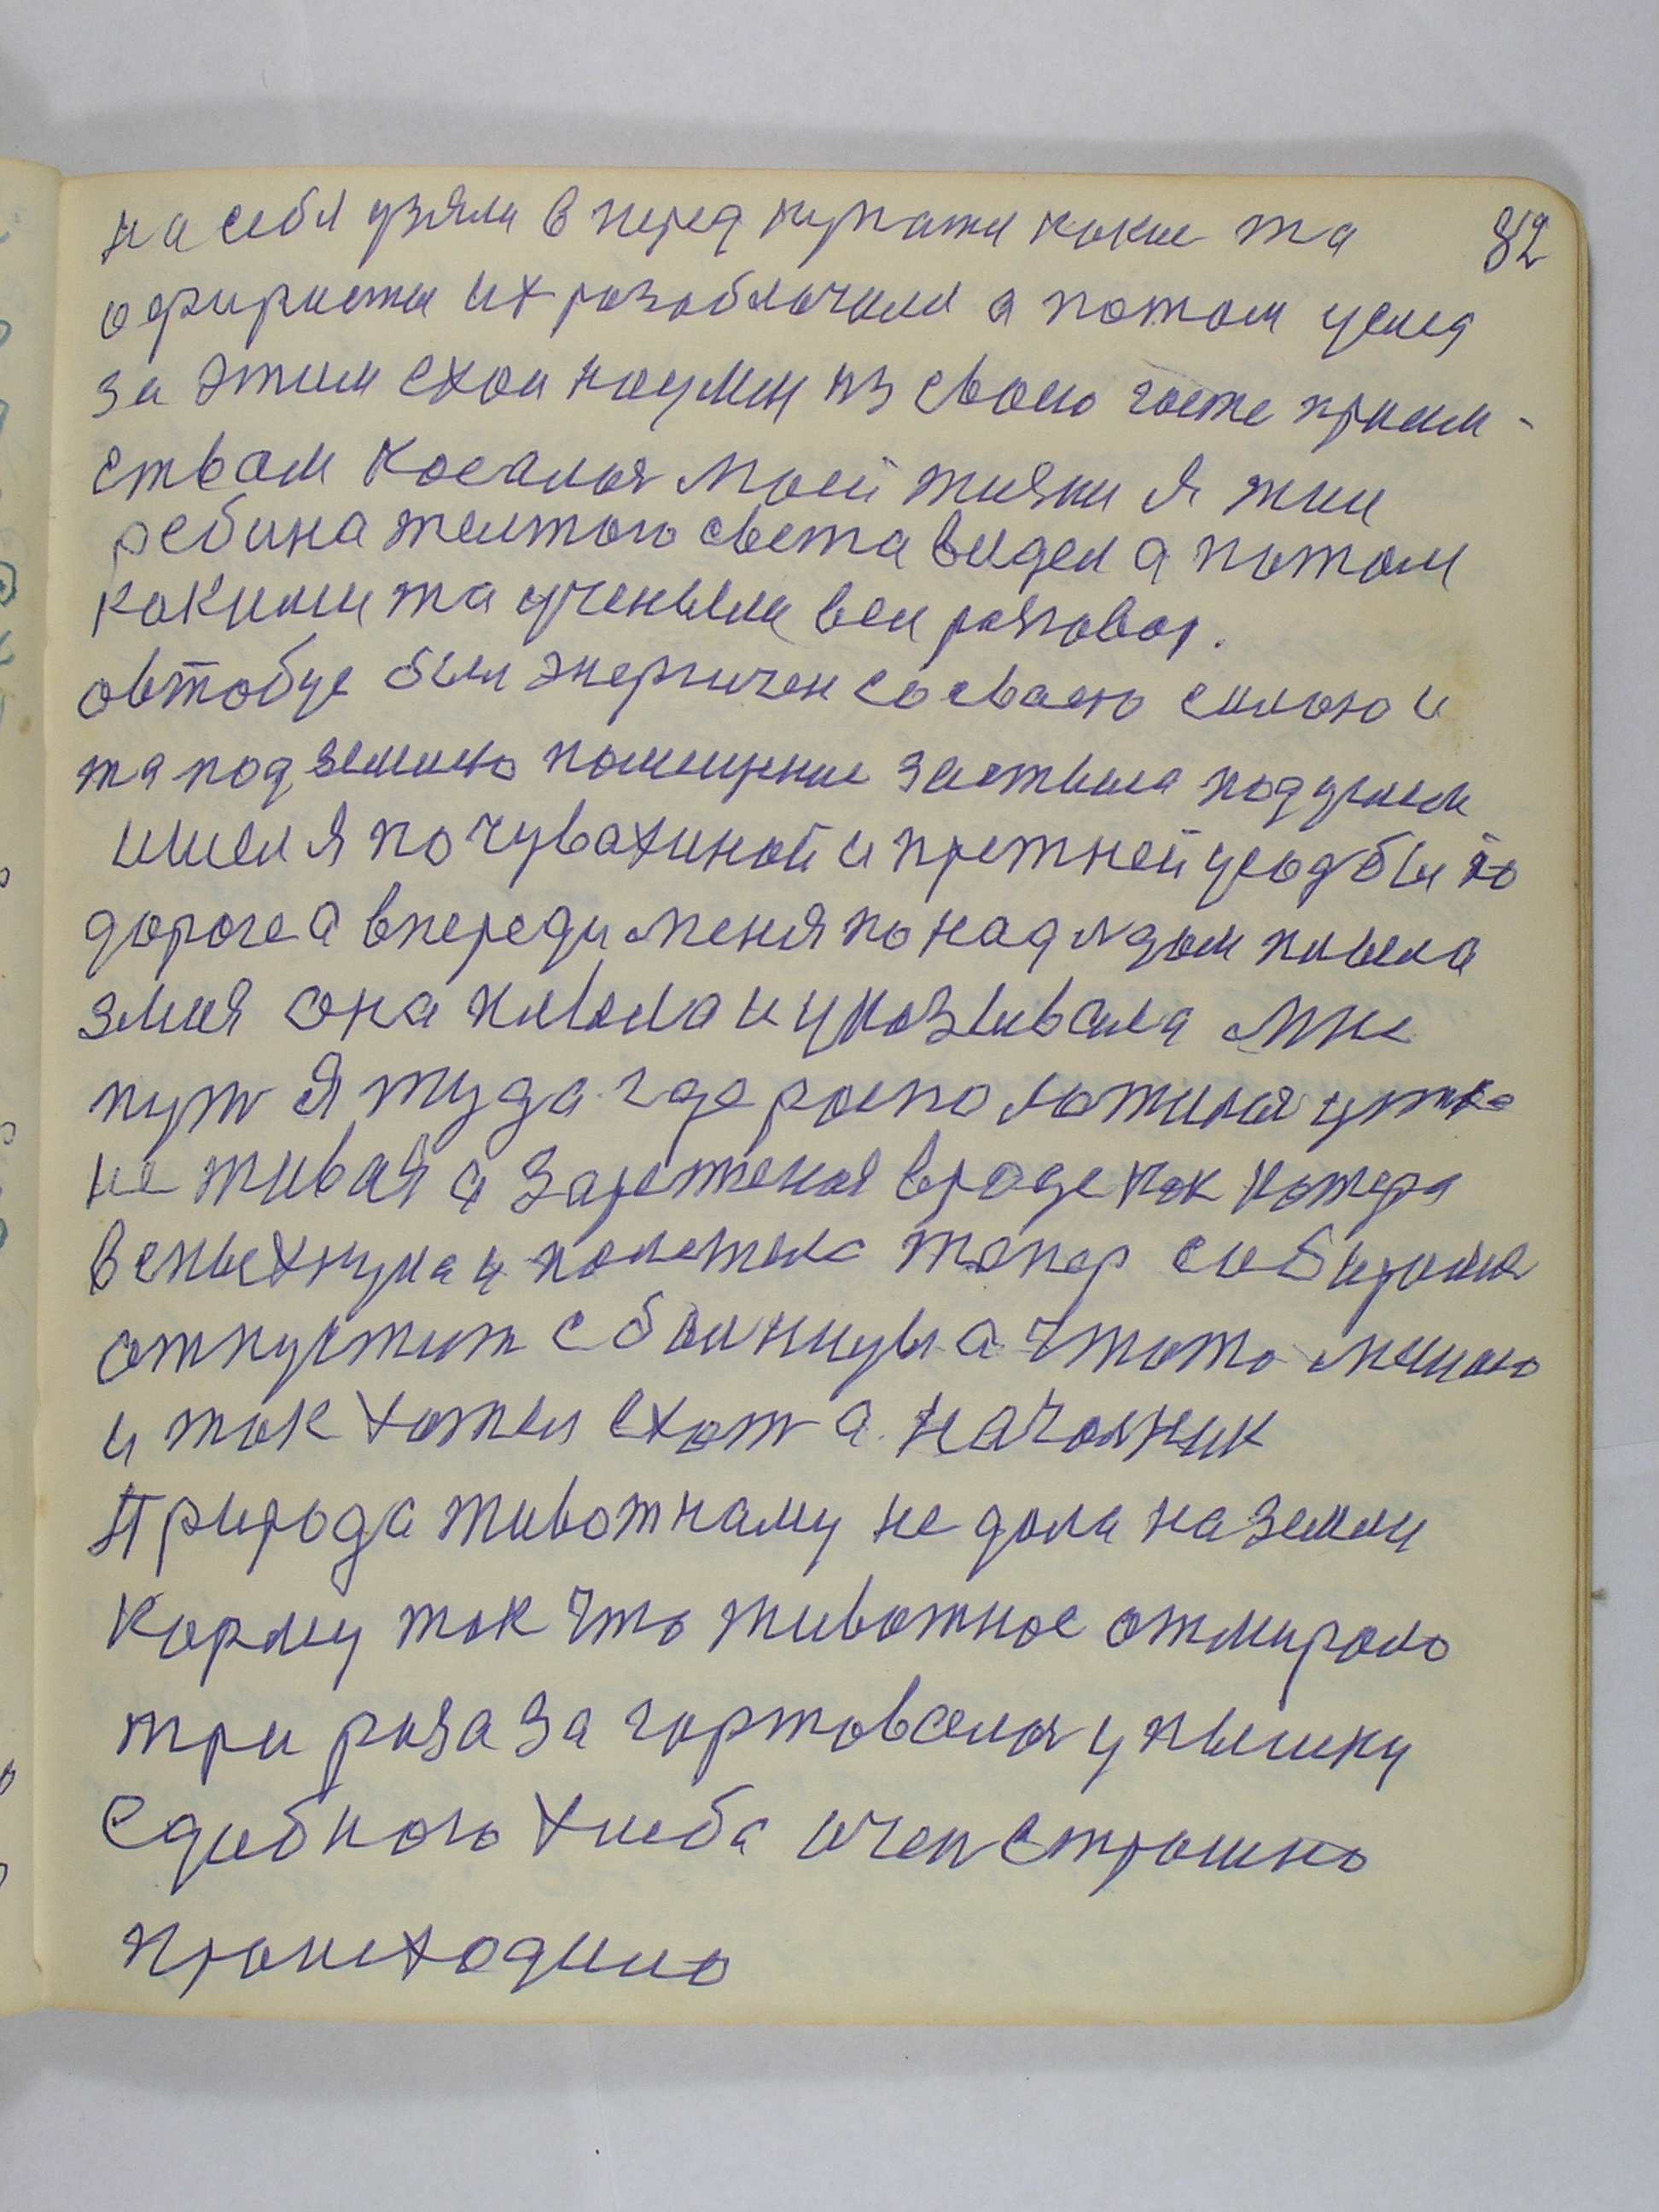 на себя узяли в перед купати какие та 82
офиристы их розоблачили а потом услед
за этим ехал из своею прииму-
ством косалоя моей жизни я жил
ребина желтого света видел а потом
какими та ученыеми вел розговор.
овтобус был энергичен со сваею силою и
та под землею помещение застыла под
ишел я по чувахиной и прежней усодбы по
дороге а впереди меня по над лдом плыла
змия она плыла и укозывала мне
пут я туда где росположилоя утка
не живая а заряженая вроде как котора
вспыхнула и полетела тепер собиролис
отпустит с болницы а чтото мешало
и так хотел ехат а начолник
Природа животнаму не дола на земли
корму так что животное отмироло
три роза за гортовалоя у пышку
сдобного хлеба очен строшно
происходило